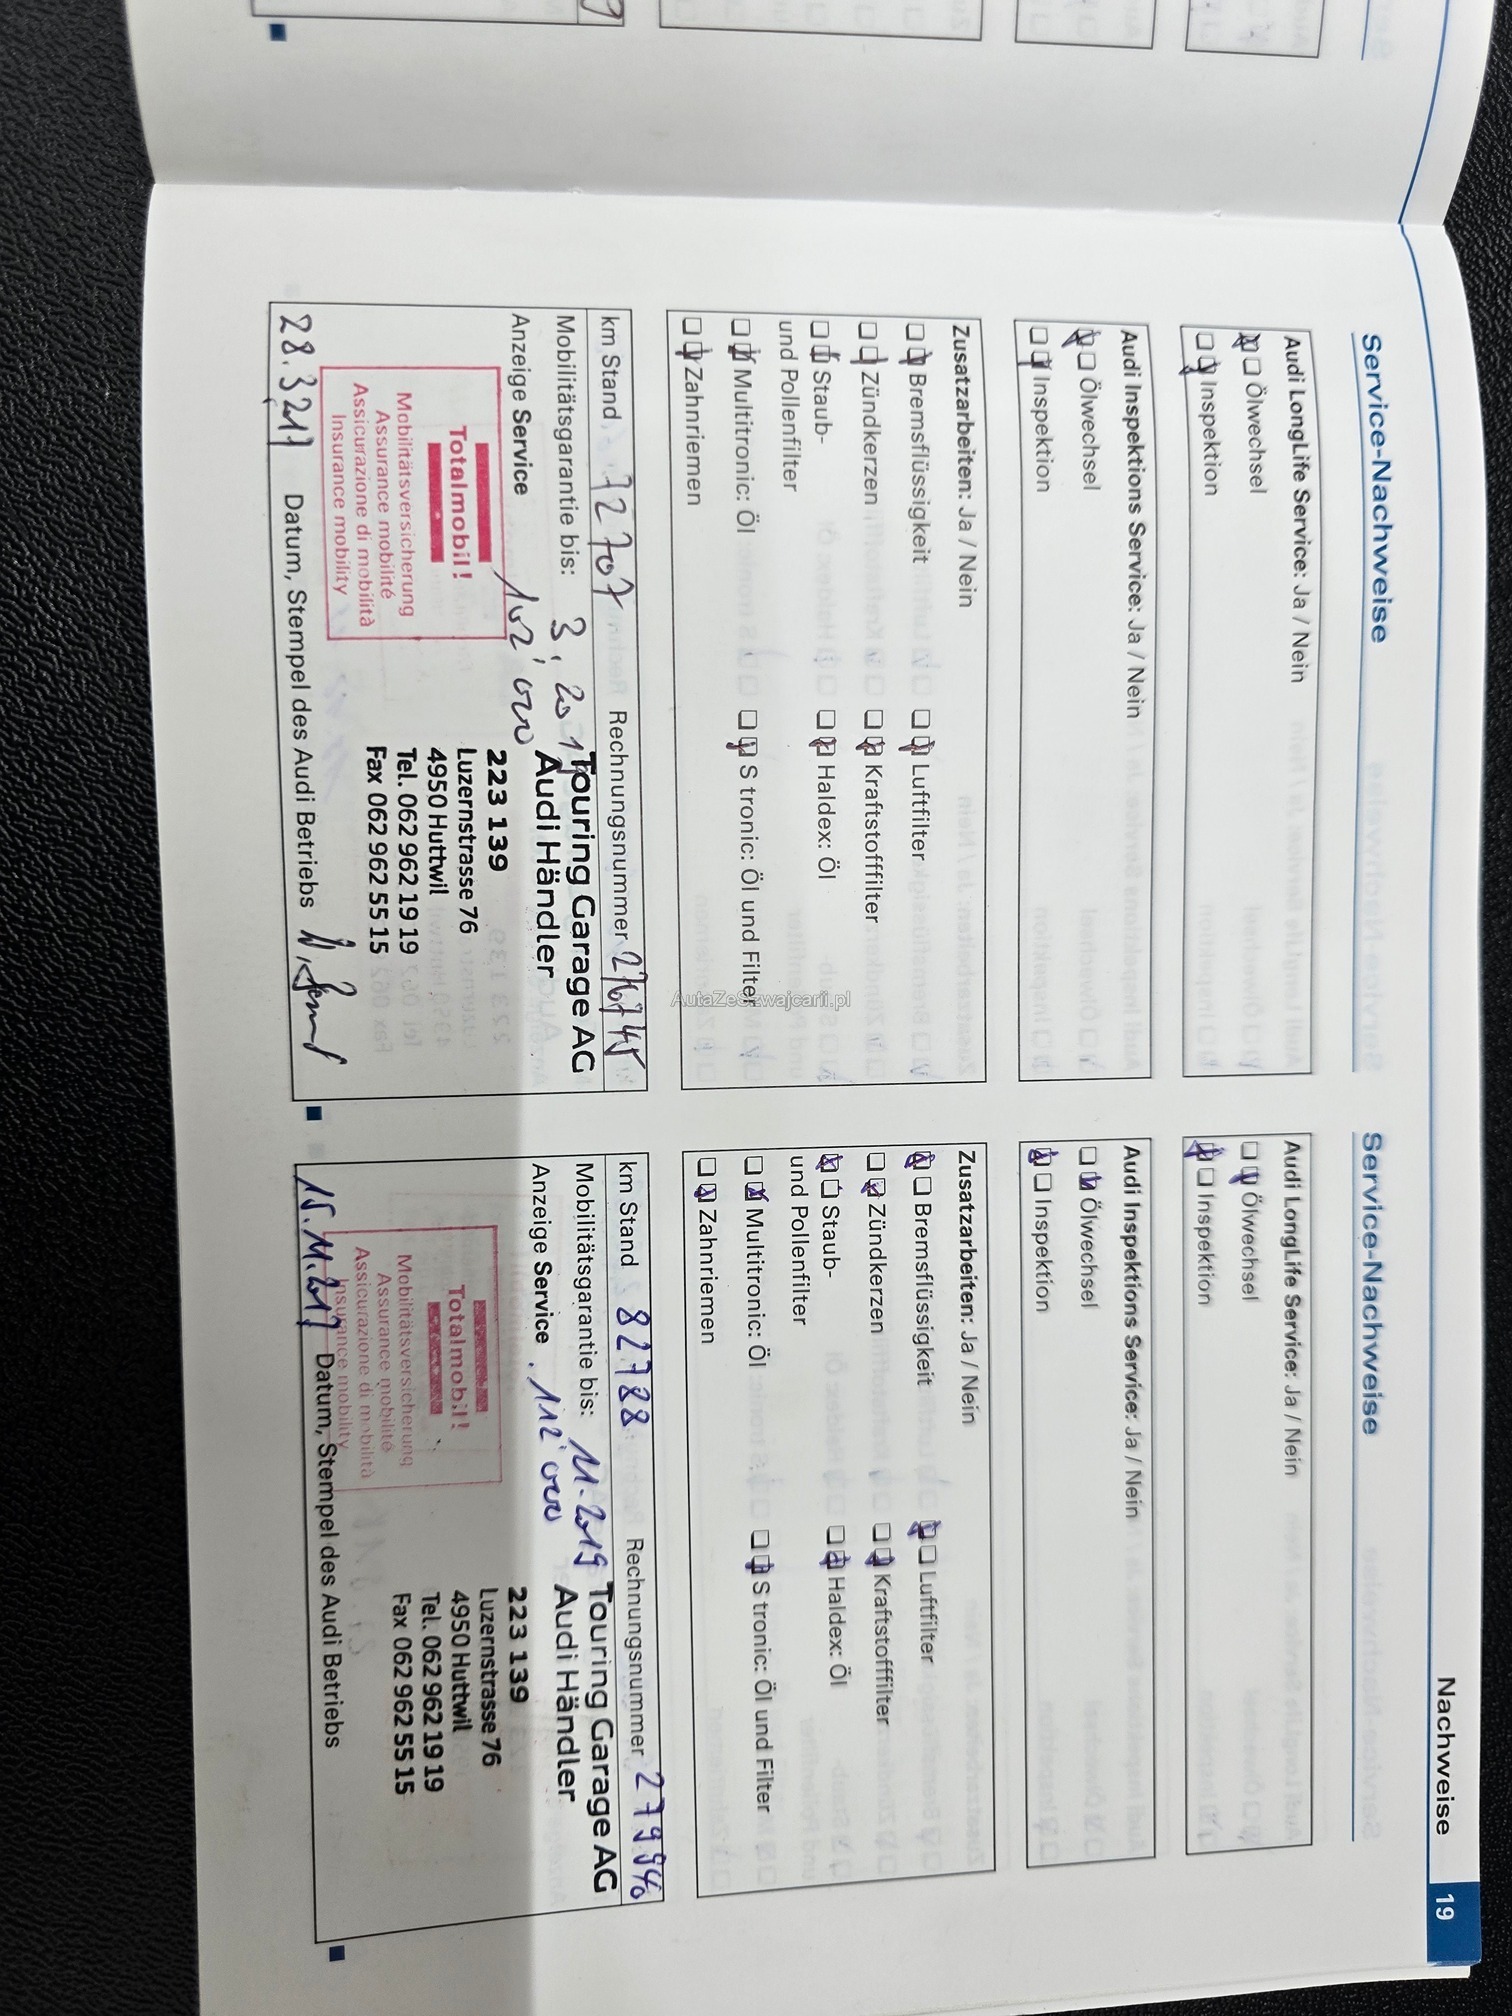 Nachweise 19
Service-Nachweise
Audi LongLife Service: Ja / Nein
Ölwechsel
Inspektion
Audi Inspektions Service: Ja / Nein
Ölwechsel
Inspektion
Zusatzarbeiten: Ja / Nein
Bremsflüssigkeit Luftfilter
Zündkerzen Kraftstofffilter
Staub- Haldex: Öl
und Pollenfilter
Multitronic: Öl S tronic: Öl und Filter
Zahnriemen
km Stand 72707 Rechnungsnummer
Mobilitätsgarantie bis:
Anzeige Service 102'000
Touring Garage AG
Audi Händler
223 139
Luzernstrasse 76
4950 Huttwil
Tel. 062 962 19 19
Fax 062 962 55 15
Totalmobil!
Mobilitätsversicherung
Assurance mobilité
Assicurazione di mobilità
Insurance mobility
28.3.2017 Datum, Stempel des Audi Betriebs
Service-Nachweise
Audi LongLife Service: Ja / Nein
Ölwechsel
Inspektion
Audi Inspektions Service: Ja / Nein
Ölwechsel
Inspektion
Zusatzarbeiten: Ja / Nein
Bremsflüssigkeit Luftfilter
Zündkerzen Kraftstofffilter
Staub- Haldex: Öl
und Pollenfilter
Multitronic: Öl S tronic: Öl und Filter
Zahnriemen
km Stand 82788 Rechnungsnummer
Mobilitätsgarantie bis: 11.2019
Anzeige Service 112'000
Touring Garage AG
Audi Händler
223 139
Luzernstrasse 76
4950 Huttwil
Tel. 062 962 19 19
Fax 062 962 55 15
Totalmobil!
Mobilitätsversicherung
Assurance mobilité
Assicurazione di mobilità
Insurance mobility
15.11.2017 Datum, Stempel des Audi Betriebs
AutaZeSzwajcarii.pl